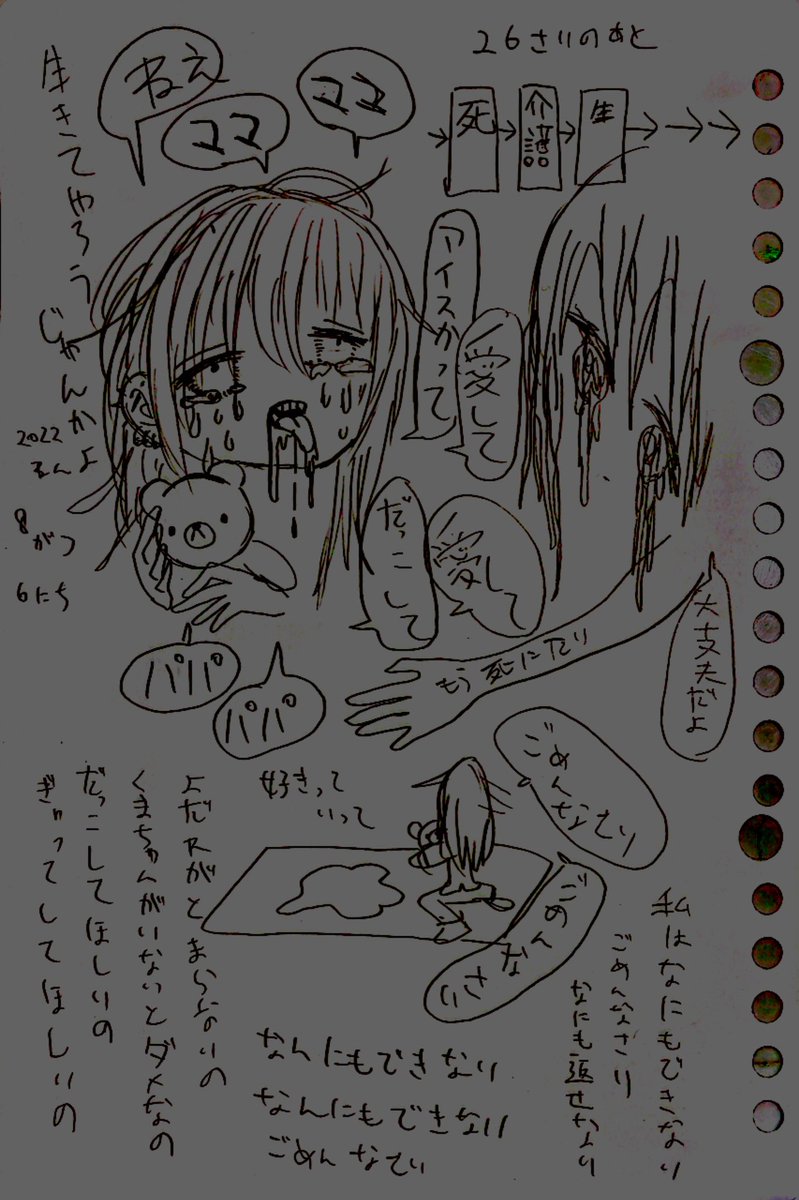 26さいのあと
死
介護
生
生きてやろう
じゃんかよ
ねえ
ママ
ママ
2022
ねん
8
がつ
6にち
アイスかって
愛して
だっこして
愛して
もう死にたい
大丈夫だよ
パパ
パパ
好きって
いって
ごめんなさい
ごめん
なさい
私はなにもできない
ごめんなさい
なにも返せない
よだれがとまらないの
くまちゃんがいないとダメなの
だっこしてほしいの
ぎゅってしてほしいの
なんにもできない
なんにもできない
ごめんなさい